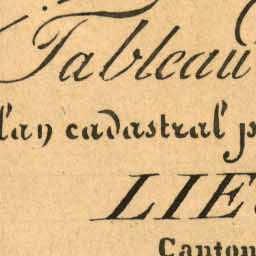 Tableau
lan cadastral p
LIE
Canton